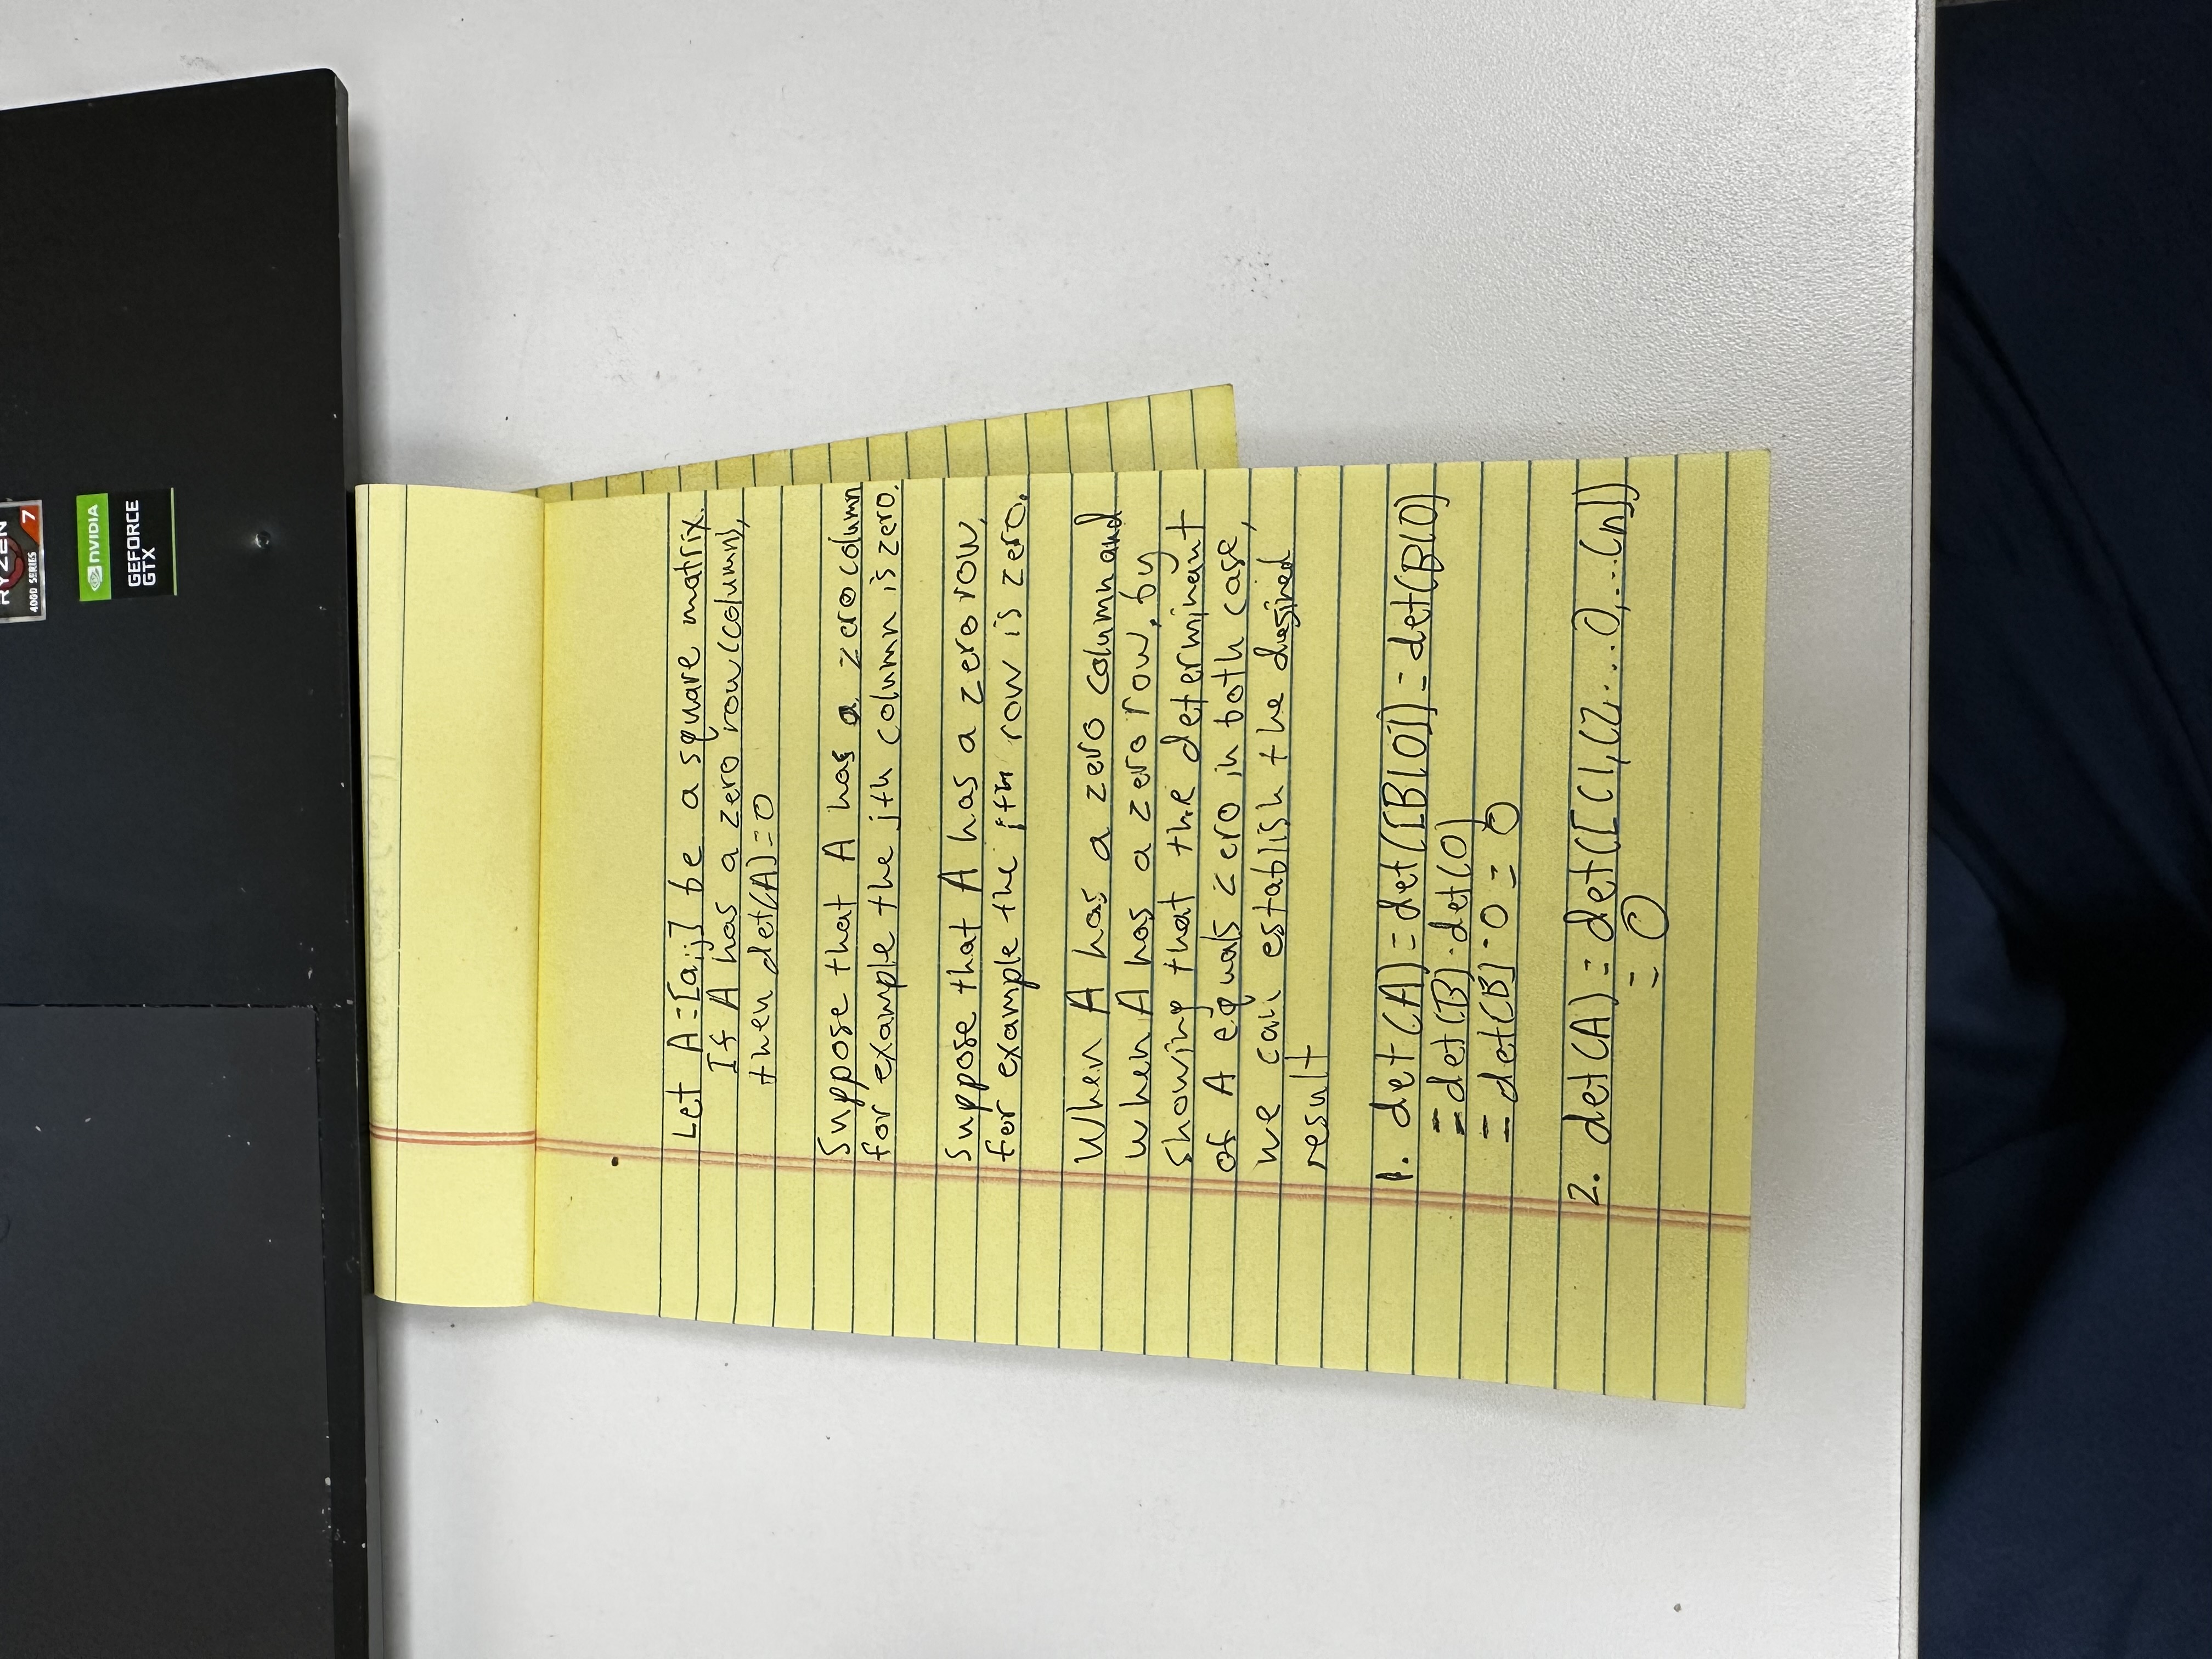 RYZEN
4000 SERIES 7
NVIDIA
GEFORCE
GTX
Let A=[aij] be a square matrix.
If A has a zero row(column),
then det(A)=0
Suppose that A has a zero column
for example the jth column is zero.
Suppose that A has a zero row,
for example the ith row is zero.
When A has a zero column and
when A has a zero row, by
showing that the determinant
of A equals zero in both case,
we can establish the desired
result
1. det(A)=det([B|0])=det(B|0)
=det(B)·det(0)
=det(B)·0=0
2. det(A)=det([C1,C2...0,...Cn])
=0